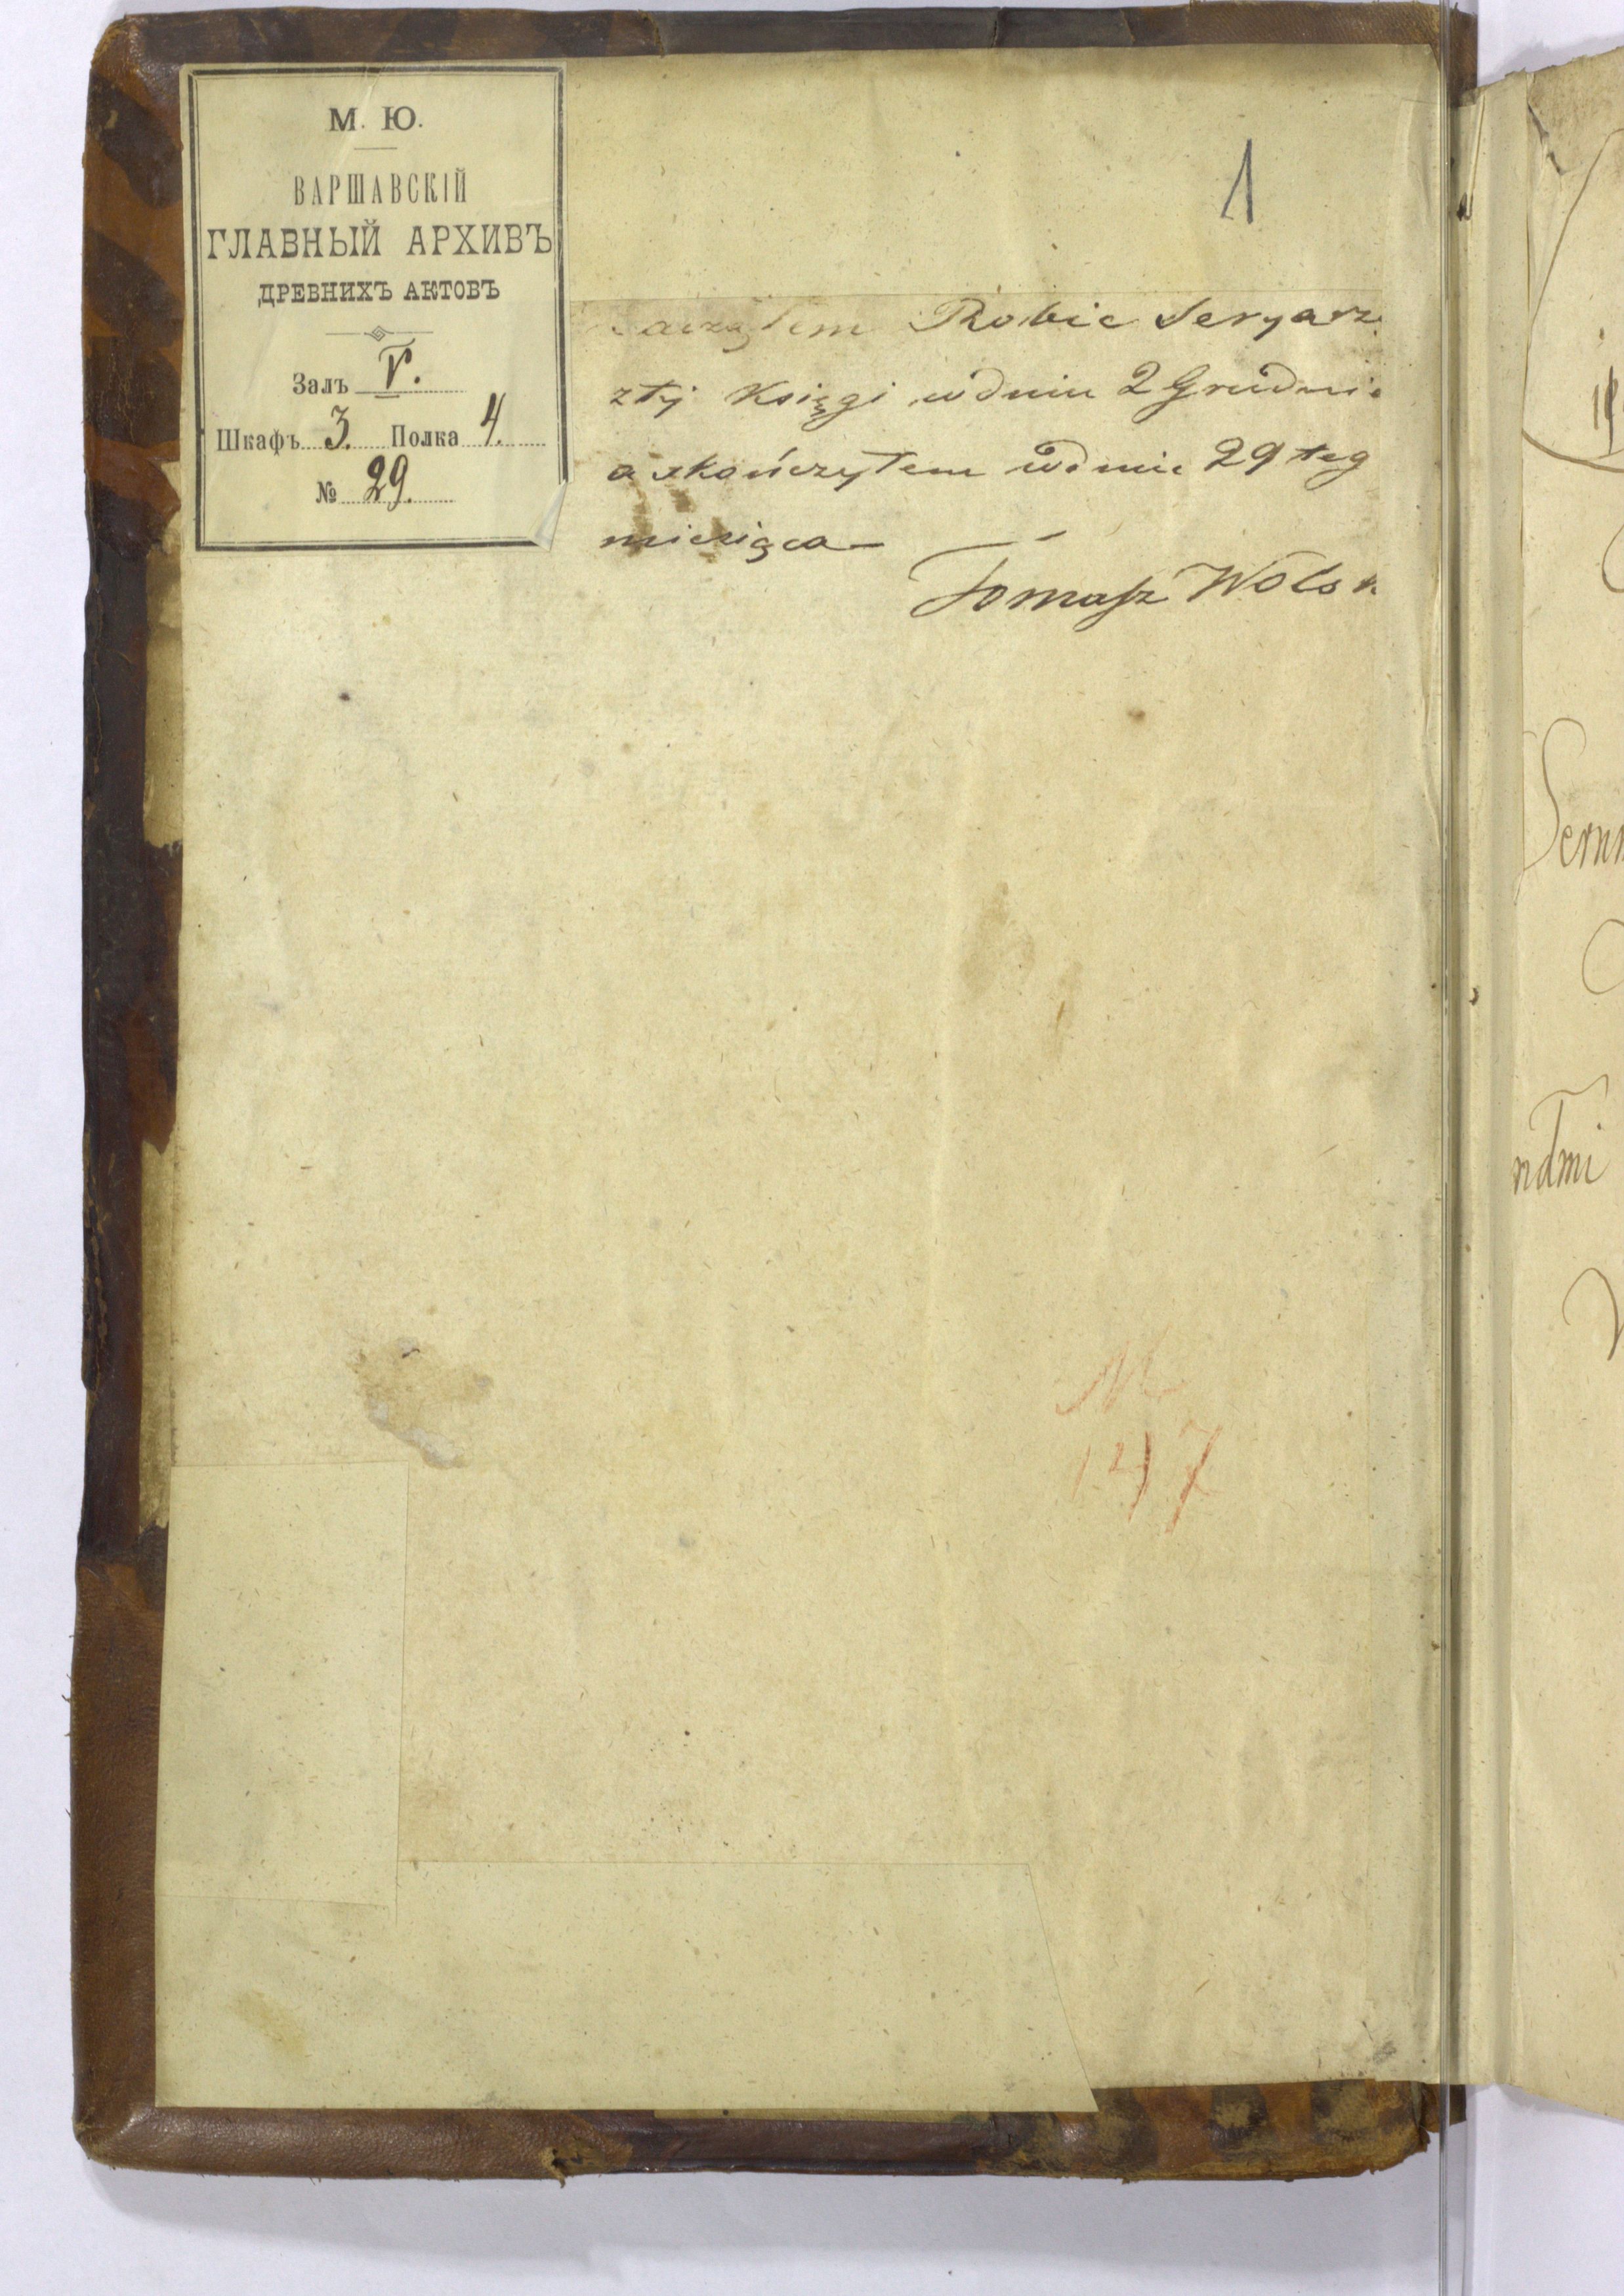 М. Ю.
ВАРШАВСКІЙ
ГЛАВНЫЙ АРХИВЪ
ДРЕВНИХЪ АКТОВЪ
Залъ V.
Шкафъ 3. Полка 4.
№ 29.
1
Robic Seryarz
z tej Księgi w dniu 2 Grudni
a skończyłem w dniu 29 teg
miesiąca —
Tomasz Wolsk
147